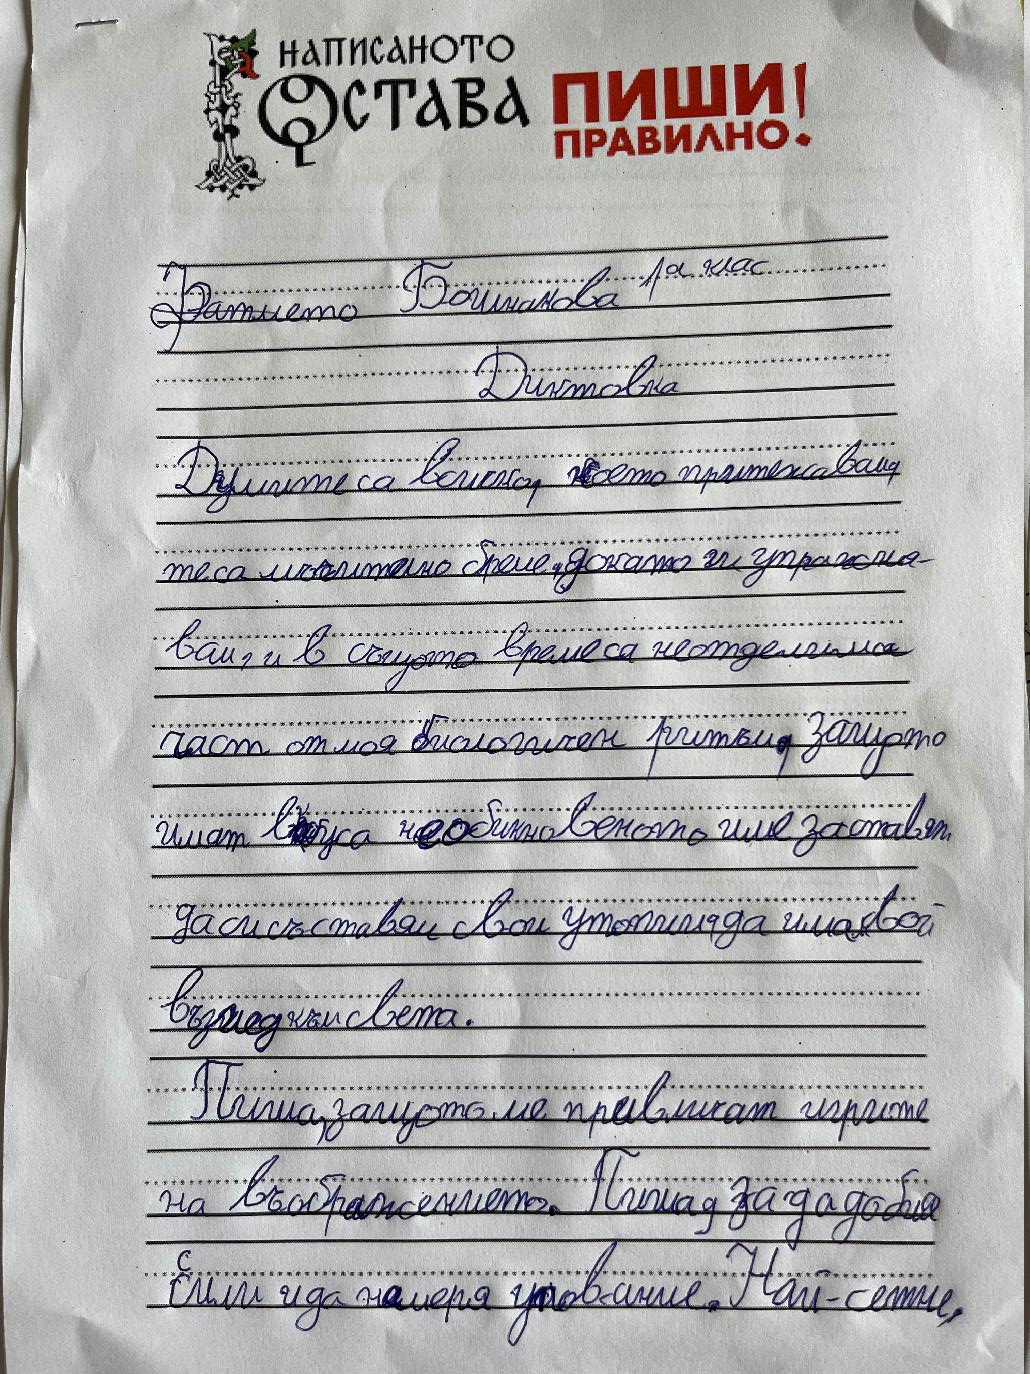 НАПИСАНОТО
ОСТАВА
ПИШИ!
ПРАВИЛНО!
Бошнакова 1а клас
Диктовка
Думите са всичко, което притежавам,
те са мъчително бреме, докато ги упражня-
вам, и в същото време са неотделима
част от моя биологичен ритъм, защото
имат вкуса на обикновеното и ме заставят
да си съставям свои утопии, да имам свой
възглед към света.
Пиша, защото ме привличат игрите
на въображението. Пиша, за да добия
сили и да намеря упование. Най-сетне,